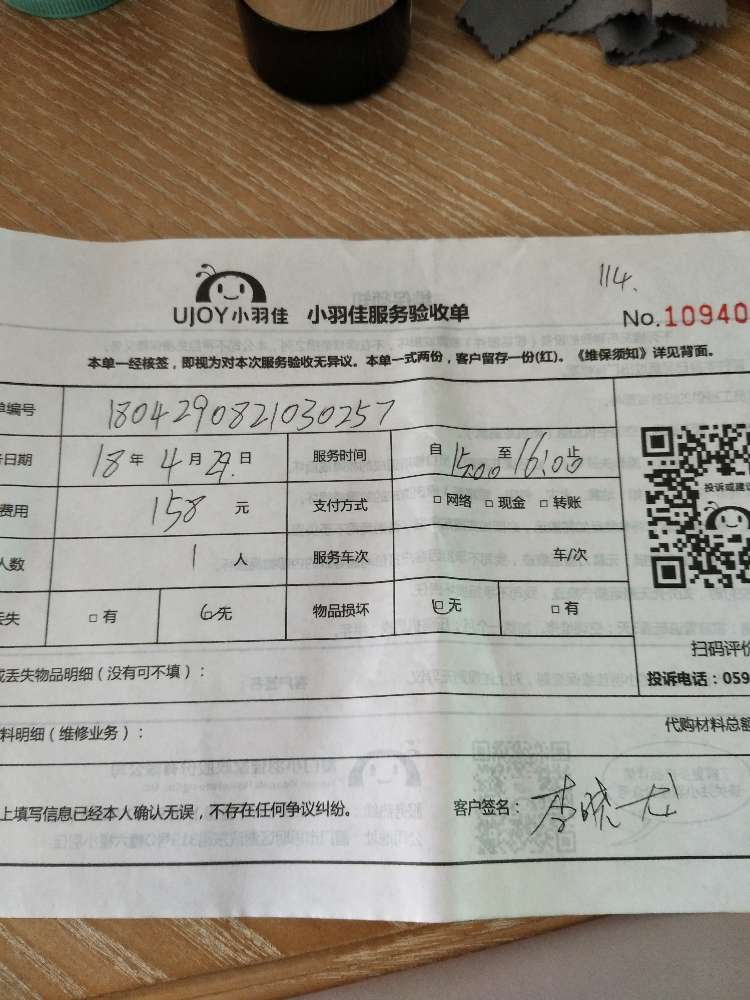 114.
UJOY小羽佳 小羽佳服务验收单 No.10940
本单一经核签，即视为对本次服务验收无异议。本单一式两份，客户留存一份(红)。《维保须知》详见背面。
单编号 1804290821030257
日期 18 年 4 月 29. 日 服务时间 自 15:00 至 16:00 止
费用 158 元 支付方式 □ 网络 □ 现金 □ 转账
人数 1 人 服务车次 车/次
丢失 □ 有 □ 无 物品损坏 □ 无 □ 有
投诉或建议
扫码评价
或丢失物品明细（没有可不填）： 投诉电话：059
料明细（维修业务）： 代购材料总额
上填写信息已经本人确认无误，不存在任何争议纠纷。 客户签名： 李晓